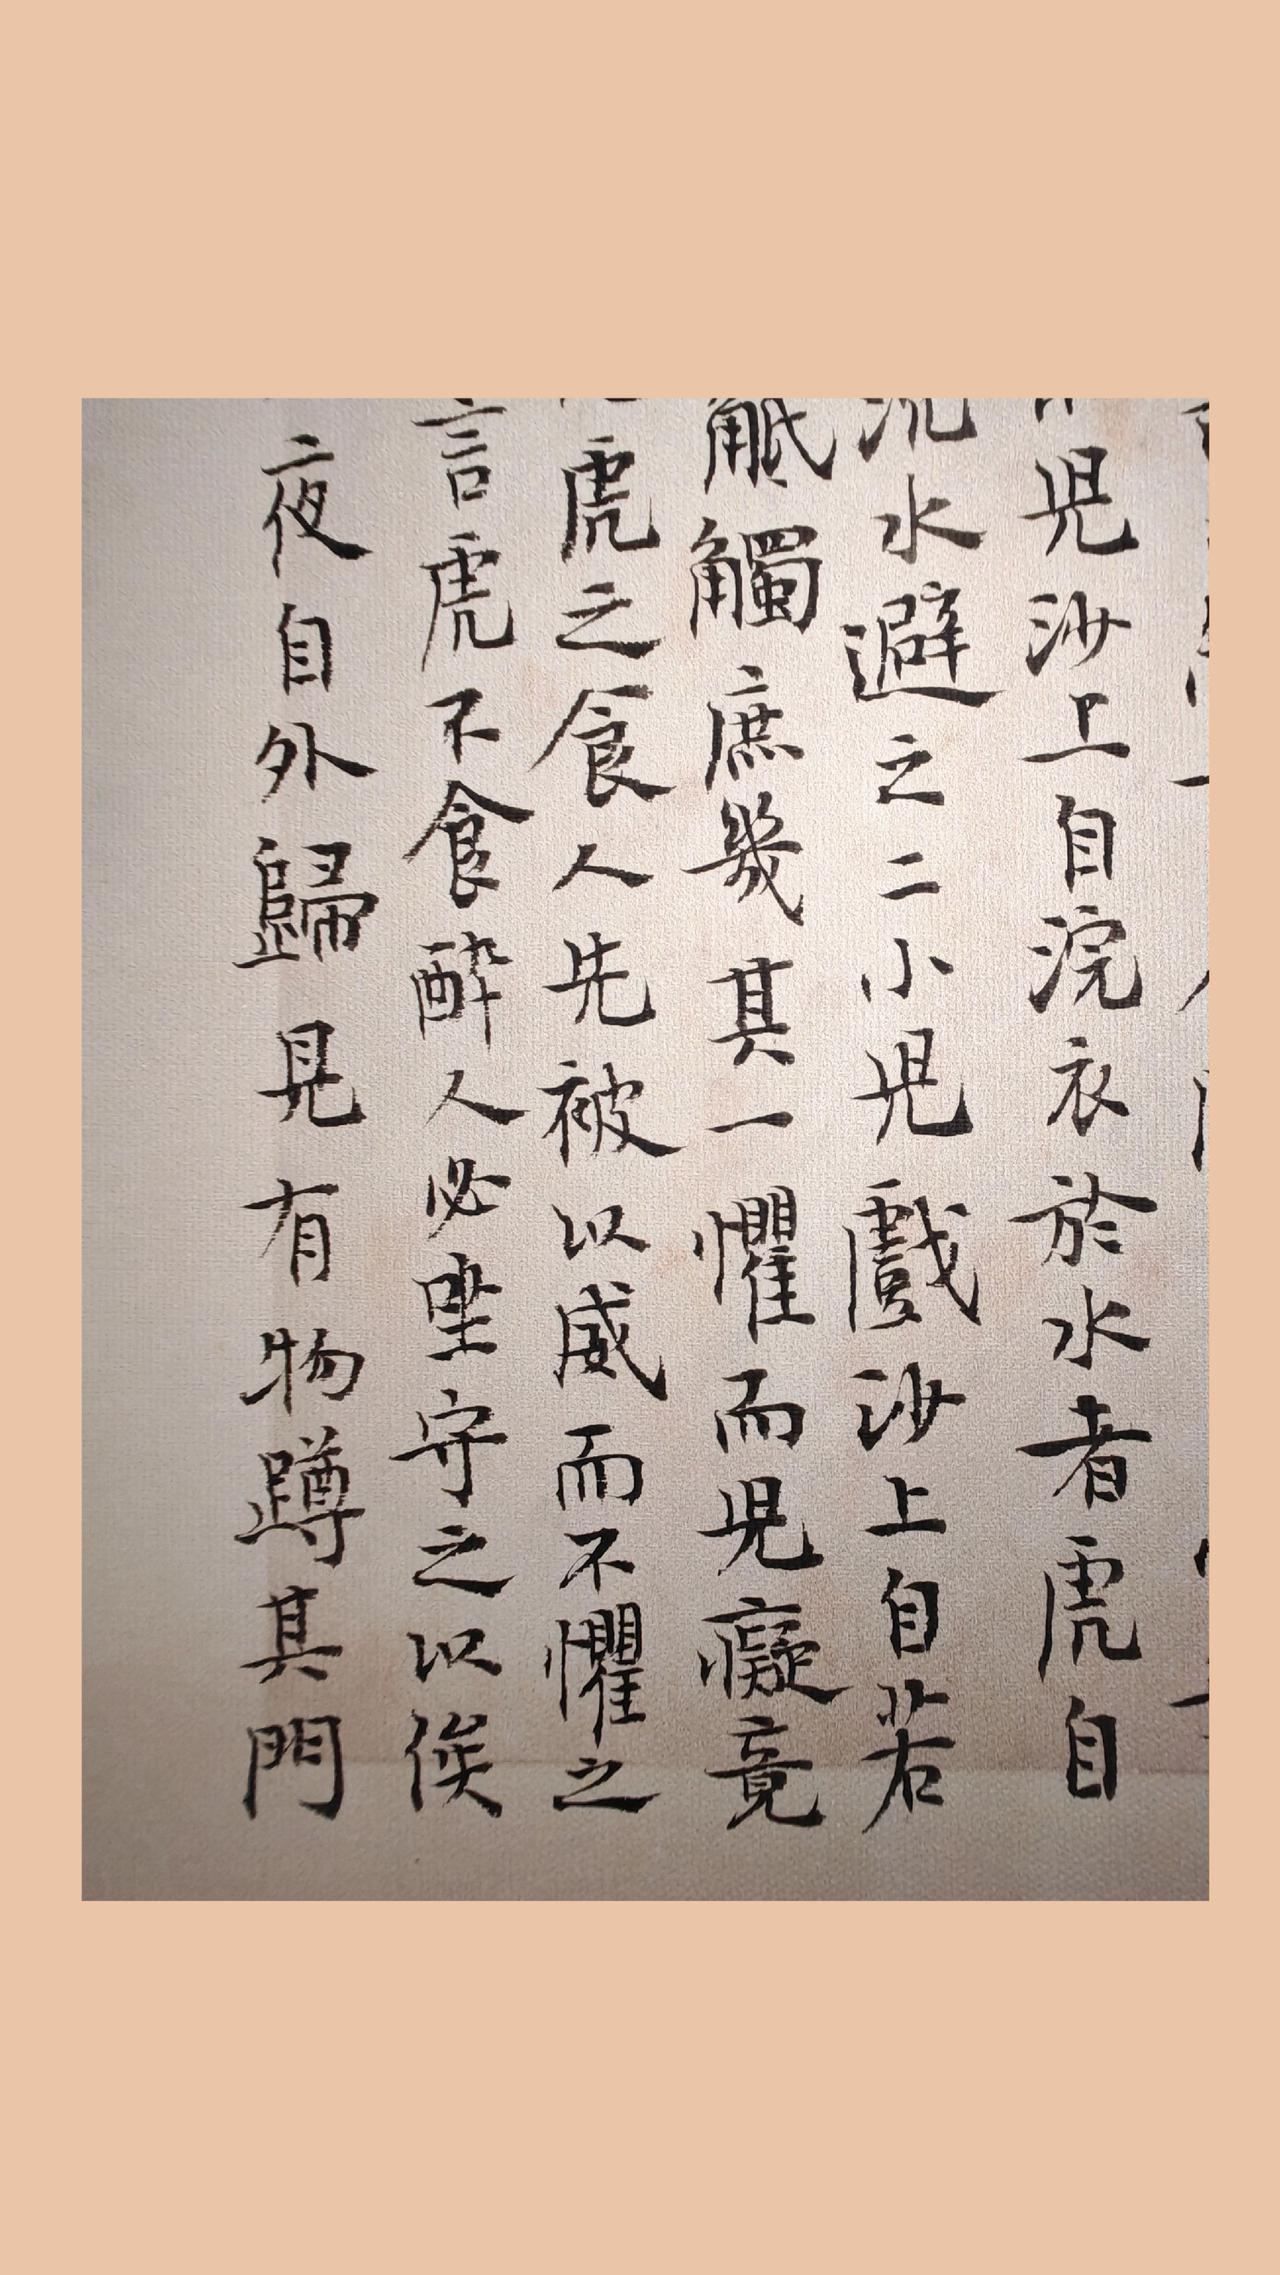 兒沙上自浣衣於水者虎自
沉水避之二小兒戲沙上自若
觝觸庶幾其一懼而兒癡竟
虎之食人先被以威而不懼之
言虎不食醉人必坐守之以俟
夜自外歸見有物蹲其門